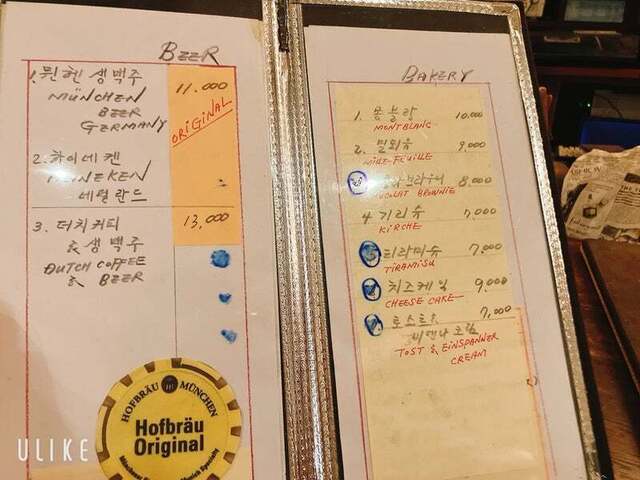 BEER
1. 뮌헨 생맥주 11,000
MÜNCHEN
BEER
GERMANY
ORIGINAL
2. 하이네켄
네덜란드
3. 더치커피 13,000
& 생맥주
DUTCH COFFEE
& BEER
HOFBRÄU MÜNCHEN
Hofbräu
Original
BAKERY
1. 몽블랑 10,000
MONTBLANC
2. 밀푀유 9,000
MILLE-FEUILLE
8,000
BROWNIE
4 키리슈 7,000
KIRCHE
티라미슈 7,000
TIRAMISU
치즈케익 9,000
CHEESE CAKE
토스트& 7,000
비엔나 크림
TOST & EINSPANNER
CREAM
ULIKE